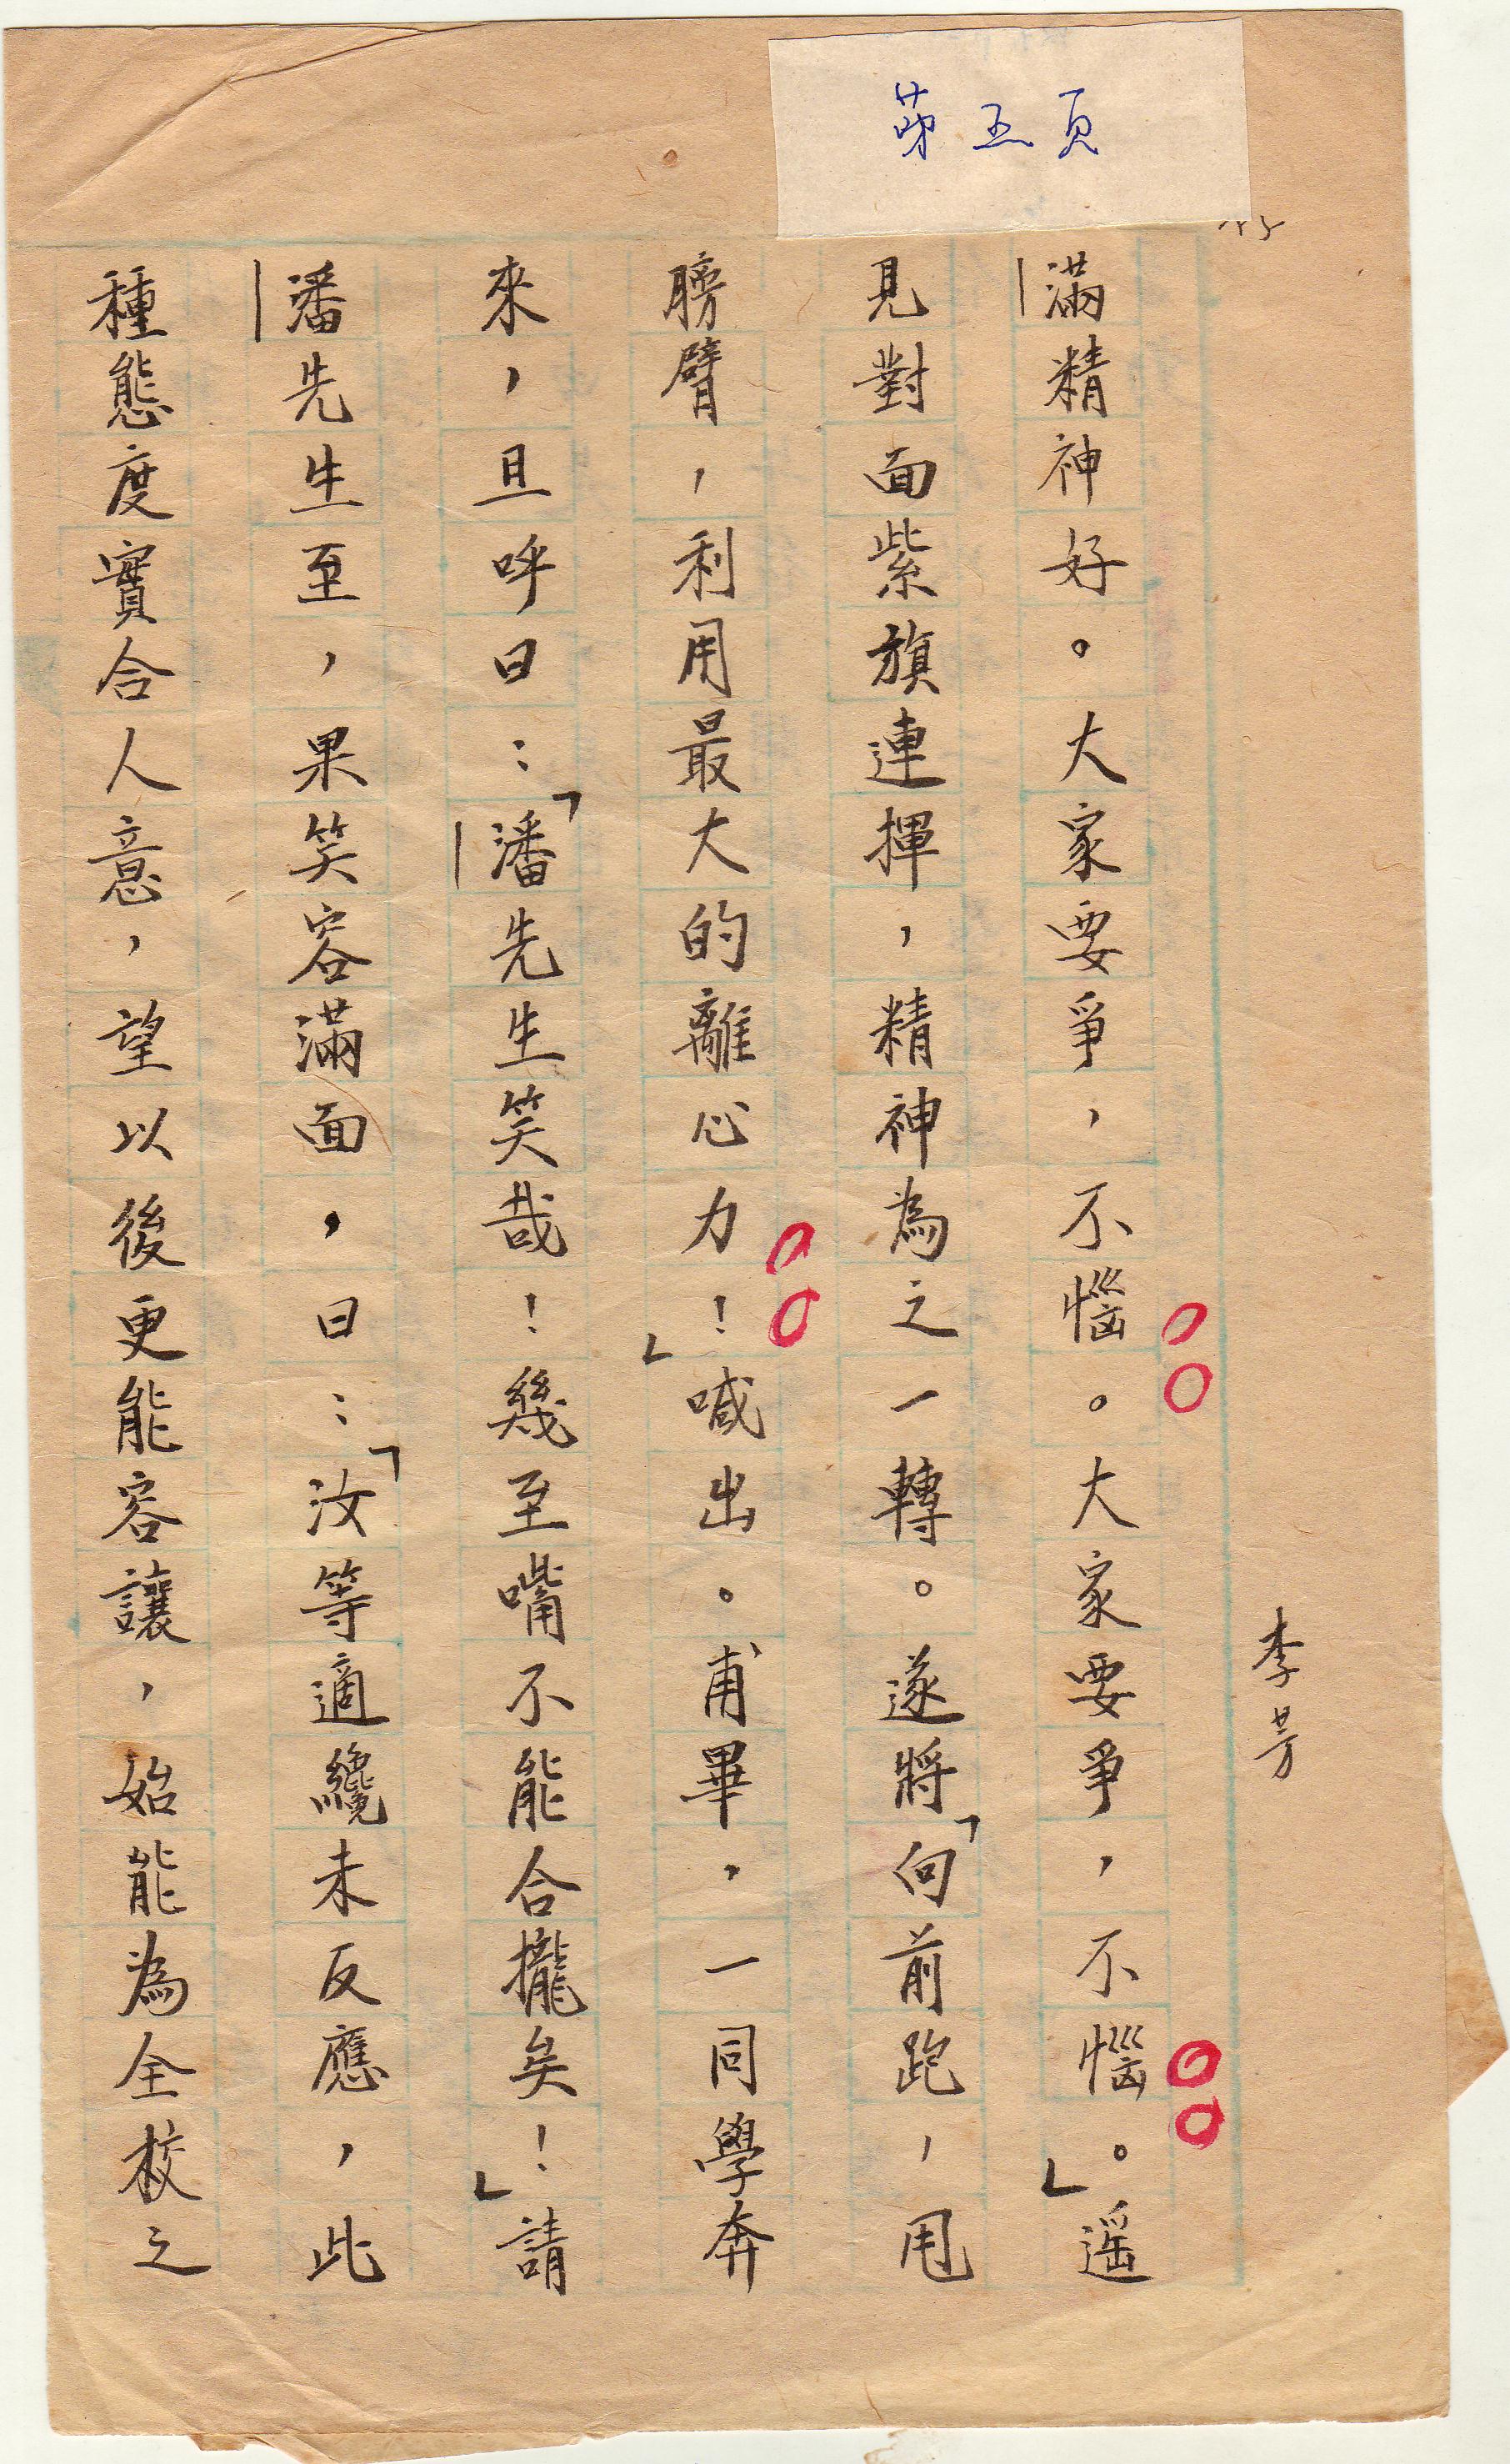 第五頁
李芳
滿精神好。大家要爭,不惱。大家要爭,不惱。」遥
見對面紫旗連揮,精神為之一轉。遂將「向前跑,甩
膀臂,利用最大的離心力!」喊出。甫畢,一同學奔
來,且呼曰:「潘先生笑哉!幾至嘴不能合攏矣!」請
潘先生至,果笑容滿面,曰:「汝等適纔未反應,此
種態度實合人意,望以後更能容讓,始能為全校之